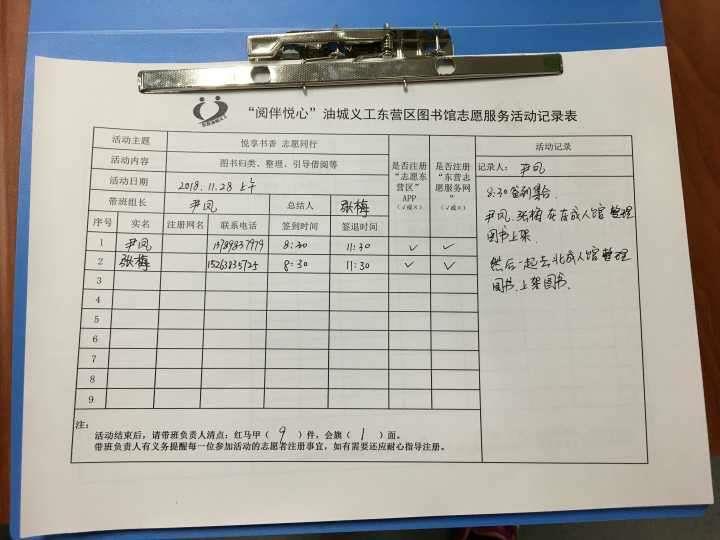 “阅伴悦心”油城义工东营区图书馆志愿服务活动记录表
活动主题 悦享书香 志愿同行
活动内容 图书归类、整理、引导借阅等
活动日期 2018.11.28 上午
带班组长 尹凤 总结人 张梅
是否注册“志愿东营区”APP（√或×）
是否注册“东营志愿服务网”（√或×）
活动记录
记录人：尹凤
序号 实名 注册网名 联系电话 签到时间 签退时间
1 尹凤 15789837979 8:30 11:30 ✓ ✓
2 张梅 15263835725 8:30 11:30 ✓ ✓
3
4
5
6
7
8
9
8:30签到集合.
尹凤.张梅在成人馆整理
图书上架.
然后一起去北成人馆整理
图书.上架图书.
注：
活动结束后，请带班负责人清点：红马甲（ 9 ）件，会旗（ 1 ）面。
带班负责人有义务提醒每一位参加活动的志愿者注册事宜，如有需要还应耐心指导注册。